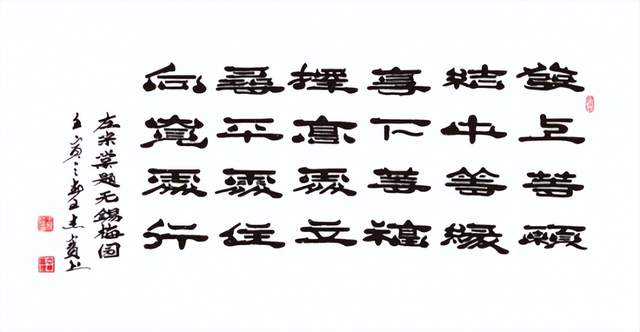 發上等願
結中等緣
享下等福
擇高處立
尋平處住
向寬處行
左宗棠题无錫梅园
壬寅之春